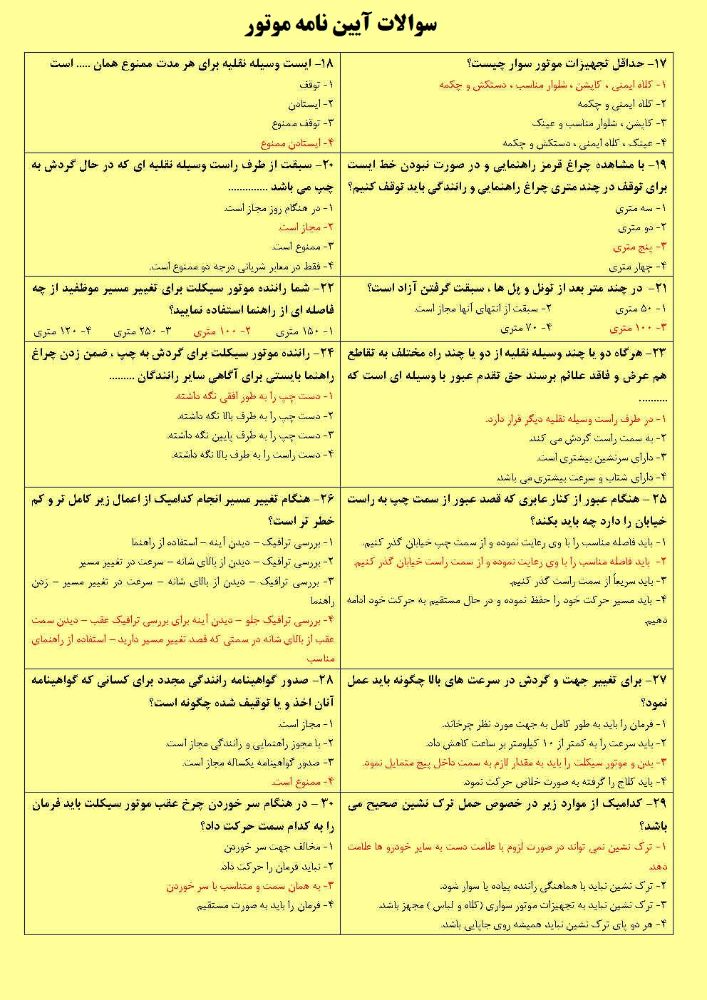 سوالات آیین نامه موتور
۱۷- حداقل تجهیزات موتور سوار چیست؟
۱- کلاه ایمنی ، کاپشن ، شلوار مناسب ، دستکش و چکمه
۲- کلاه ایمنی و چکمه
۳- کاپشن ، شلوار مناسب و عینک
۴- عینک ، کلاه ایمنی ، دستکش و چکمه
۱۸- ایست وسیله نقلیه برای هر مدت ممنوع همان ..... است
۱- توقف
۲- ایستادن
۳- توقف ممنوع
۴- ایستادن ممنوع
۱۹- با مشاهده چراغ قرمز راهنمایی و در صورت نبودن خط ایست
برای توقف در چند متری چراغ راهنمایی و رانندگی باید توقف کنیم؟
۱- سه متری
۲- دو متری
۳- پنج متری
۴- چهار متری
۲۰- سبقت از طرف راست وسیله نقلیه ای که در حال گردش به
چپ می باشد ..............
۱- در هنگام روز مجاز است.
۲- مجاز است.
۳- ممنوع است.
۴- فقط در معابر شریانی درجه دو ممنوع است.
۲۱- در چند متر بعد از تونل و پل ها ، سبقت گرفتن آزاد است؟
۱- ۵۰ متری ۲- سبقت از انتهای آنها مجاز است.
۳- ۱۰۰ متری ۴- ۷۰ متری
۲۲- شما راننده موتور سیکلت برای تغییر مسیر موظفید از چه
فاصله ای از راهنما استفاده نمایید؟
۱- ۱۵۰ متری ۲- ۱۰۰ متری ۳- ۲۵۰ متری ۴- ۱۲۰ متری
۲۳- هرگاه دو یا چند وسیله نقلیه از دو یا چند راه مختلف به تقاطع
هم عرض و فاقد علائم برسند حق تقدم عبور با وسیله ای است که
..........
۱- در طرف راست وسیله نقلیه دیگر قرار دارد.
۲- به سمت راست گردش می کند.
۳- دارای سرنشین بیشتری است.
۴- دارای شتاب و سرعت بیشتری می باشد.
۲۴- راننده موتور سیکلت برای گردش به چپ ، ضمن زدن چراغ
راهنما بایستی برای آگاهی سایر رانندگان .........
۱- دست چپ را به طور افقی نگه داشته.
۲- دست چپ را به طرف بالا نگه داشته.
۳- دست چپ را به طرف پایین نگه داشته.
۴- دست راست را به طرف بالا نگه داشته.
۲۵ - هنگام عبور از کنار عابری که قصد عبور از سمت چپ به راست
خیابان را دارد چه باید بکند؟
۱- باید فاصله مناسب را با وی رعایت نموده و از سمت چپ خیابان گذر کنیم.
۲- باید فاصله مناسب را با وی رعایت نموده و از سمت راست خیابان گذر کنیم.
۳- باید سریعاً از سمت راست گذر کنیم.
۴- باید مسیر حرکت خود را حفظ نموده و در حال مستقیم به حرکت خود ادامه
دهیم.
۲۶- هنگام تغییر مسیر انجام کدامیک از اعمال زیر کامل تر و کم
خطر تر است؟
۱- بررسی ترافیک – دیدن آینه – استفاده از راهنما
۲- بررسی ترافیک – دیدن از بالای شانه – سرعت در تغییر مسیر
۳- بررسی ترافیک – دیدن از بالای شانه – سرعت در تغییر مسیر – زدن
راهنما
۴- بررسی ترافیک جلو – دیدن آینه برای بررسی ترافیک عقب – دیدن سمت
عقب از بالای شانه در سمتی که قصد تغییر مسیر دارید – استفاده از راهنمای
مناسب
۲۷- برای تغییر جهت و گردش در سرعت های بالا چگونه باید عمل
نمود؟
۱- فرمان را باید به طور کامل به جهت مورد نظر چرخاند.
۲- باید سرعت را به کمتر از ۱۰ کیلومتر بر ساعت کاهش داد.
۳- بدن و موتور سیکلت را باید به مقدار لازم به سمت داخل پیچ متمایل نمود.
۴- باید کلاج را گرفته به صورت خلاص حرکت نمود.
۲۸- صدور گواهینامه رانندگی مجدد برای کسانی که گواهینامه
آنان اخذ و یا توقیف شده چگونه است؟
۱- مجاز است.
۲- با مجوز راهنمایی و رانندگی مجاز است.
۳- صدور گواهینامه یکساله مجاز است.
۴- ممنوع است.
۲۹- کدامیک از موارد زیر در خصوص حمل ترک نشین صحیح می
باشد؟
۱- ترک نشین نمی تواند در صورت لزوم با علامت دست به سایر خودرو ها علامت
دهد.
۲- ترک نشین نباید با هماهنگی راننده پیاده یا سوار شود.
۳- ترک نشین نباید به تجهیزات موتور سواری (کلاه و لباس ) مجهز باشد.
۴- هر دو پای ترک نشین نباید همیشه روی جاپایی باشد.
۳۰ - در هنگام سر خوردن چرخ عقب موتور سیکلت باید فرمان
را به کدام سمت حرکت داد؟
۱- مخالف جهت سر خوردن
۲- نباید فرمان را حرکت داد.
۳- به همان سمت و متناسب با سر خوردن
۴- فرمان را باید به صورت مستقیم